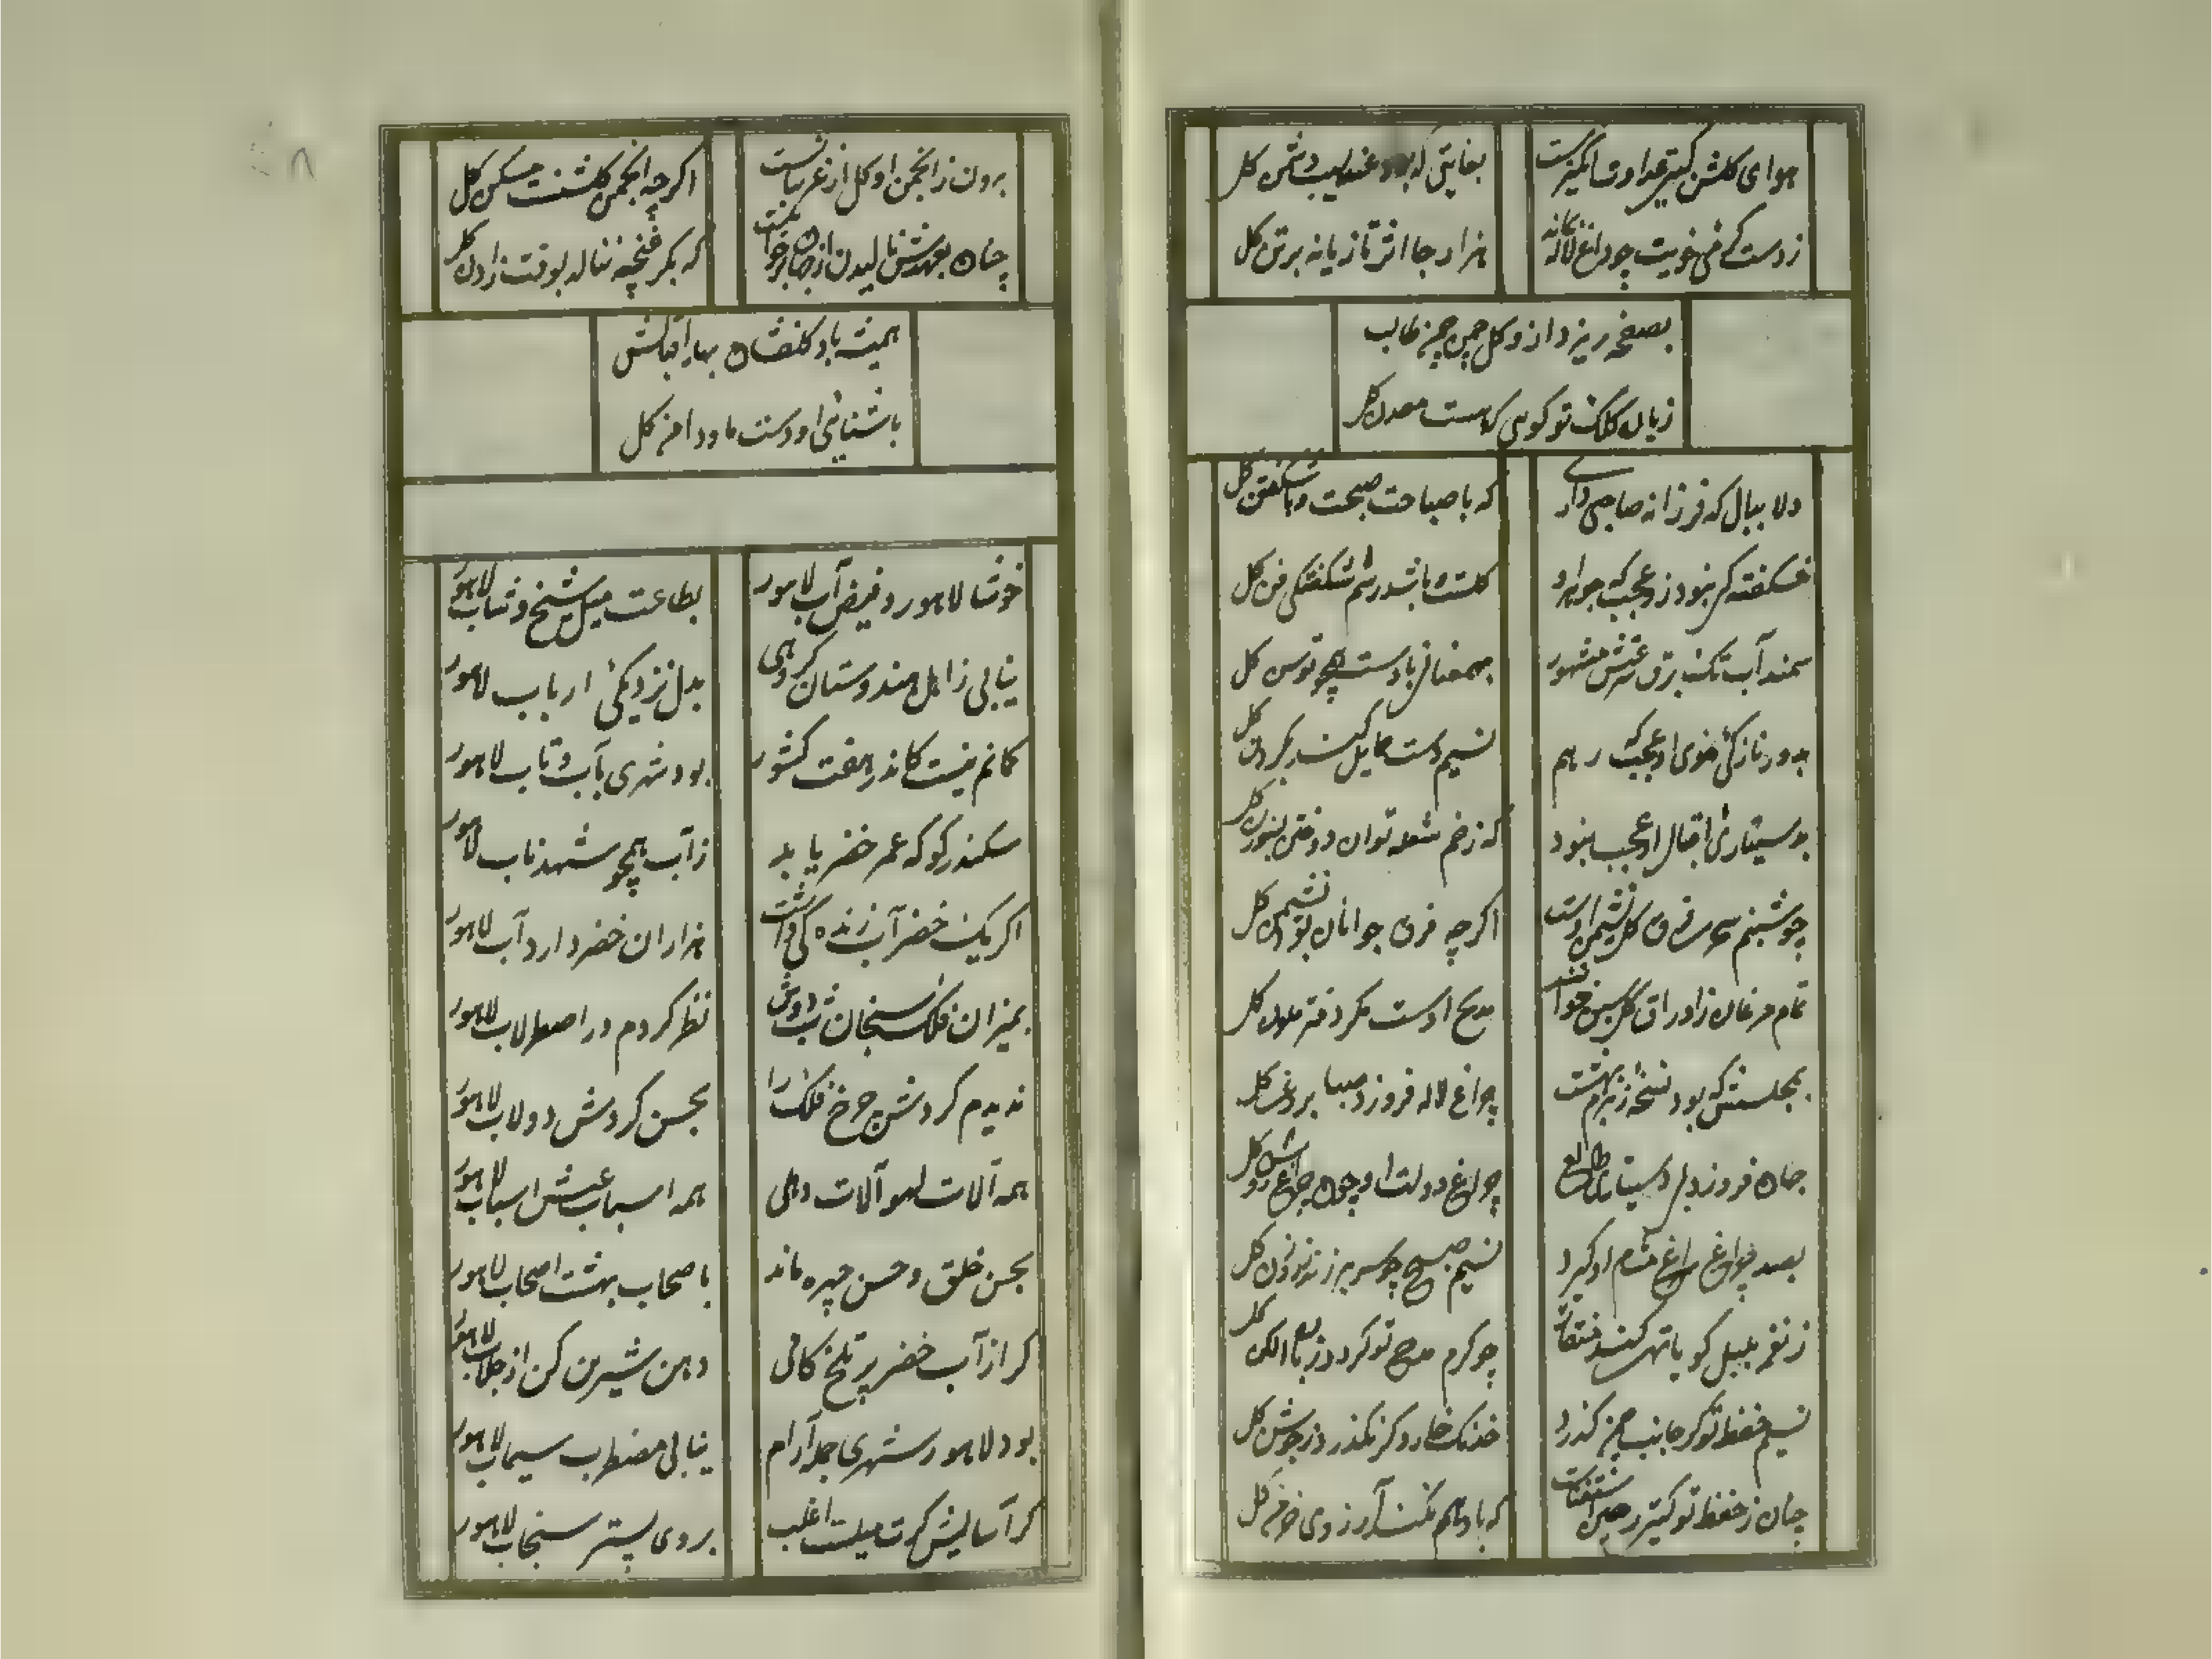 هوای کلشن کیتی عداوت انگیزست
بغایتی که بود عندلیب دشمن کل
زدست کرمی خویت چو داغ لاله
هزار جا اثر تازیانه برتن کل
بصفحه ریزد از و کل چمن چمن طالب
زبان کلک تو کوئی که هست معدن کل
دلا ببال که فرزانه صاحبی داری
که با صباحت صبحت و با شکفتن کل
شکفته کر نبود زو عجب که
کلست و باشد رسم شکفتکی فن کل
سمند آب تک برق مشهور
بهمعنانی بادست همچو توسن کل
بدور نازکی خوی او عجب که
نسیم دست حمایل کند بکردن کل
بدستیاری اقبال او عجب نبود
که زخم شعله توان دوختن بسوزن کل
چو شبنم سحری فرق کل نشیمن اوست
اکرچه فرق جوانان بود نشیمن کل
تمام مرغان ز اوراق کل همین خوانند
مدیح اوست مکر دفتر ملون کل
بمجلسش که بود نسخه ز بزم بهشت
چراغ لاله فروزد صبا بروغن کل
جهان فروزد دستیاری طالع
چراغ دولت او چون چراغ روشن کل
بصد چراغ سراغ مشام او کیرد
نسیم صبح چو سر برزند ز روزن کل
ز نغمه بلبل کویا تهی کند منقار
چو کرم مدح تو کردد زبان الکن کل
نسیم حفظ تو کر جانب چمن کذرد
خدنک خار دکر نکذرد ز جوشن کل
چنان ز حفظ تو کیتی
که باد هم نکند آرزوی خرمن کل
برون ز انجمن او کل از غریبانست
اکرچه انجمن کلشنست مسکن کل
چنان بعهدش نالیدن از جهان برخاست
که بکر غنچه ننالد بوقت زادن کل
همیشه باد کلفشان بهار اقبالش
باشنائی او دست ما و دامن کل
خوشا لاهور و فیض آب لاهور
بطاعت میل شیخ و شاب لاهور
نیابی ز اهل هندوستان کروهی
بدل نزدیکی ارباب لاهور
کمانم نیست کاندر هفت کشور
بود شهری بآب و تاب لاهور
سکندر کو که عمر خضر یابد
ز آب همچو شهد ناب لاهور
اکر یک خضر آب زنده کی داشت
هزاران خضر دارد آب لاهور
بمیزان فلک سنجان شب دوش
نظر کردم در اصطرلاب لاهور
ندیدم کردش چرخ فلک را
بحسن کردش دولاب لاهور
همه آلات لهو آلات دهلی
همه اسباب عیش اسباب لاهور
بحسن خلق و حسن چهره ماند
باصحاب بهشت اصحاب لاهور
کر از آب خضر پر تلخ کامی
دهن شیرین کن از جلاب لاهور
بود لاهور شهری جمله آرام
نیابی مضطرب سیماب لاهور
کر آسایش کرت میلست اغلب
بروی بستر سنجاب لاهور